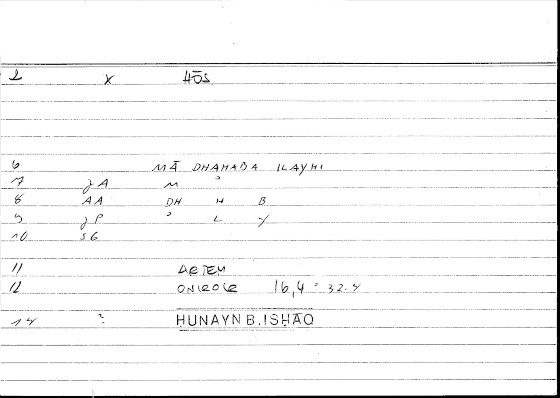 2 x HŌS
6 MĀ DHAHABA ILAYHI
7 JA M ʾ
8 AA DH H B
9 JP ʾ L Y
10 SG
11 ARTEM
12 ONIROCR 16,4 = 32.4
14 ? HUNAYN B. ISḤĀQ